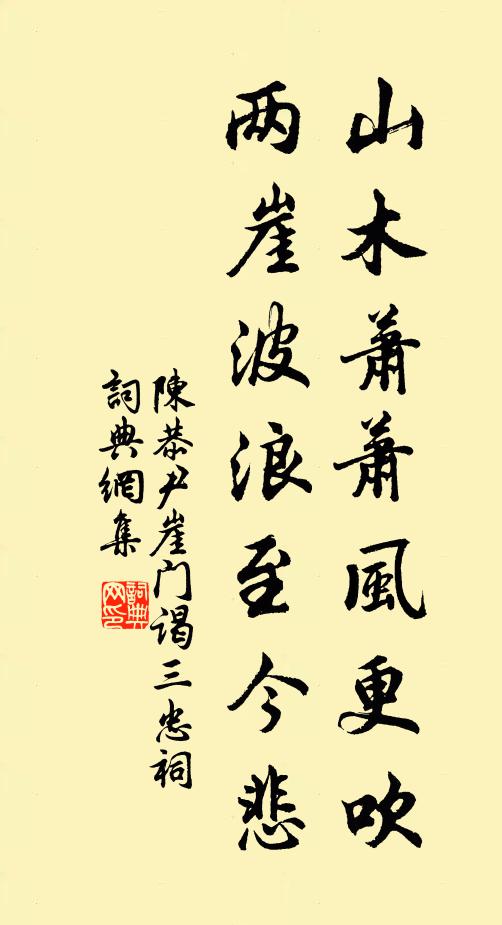 山木蕭蕭風更吹
两崖波浪至今悲
陳恭尹崖门谒三忠祠
詞典網集
詞典网印